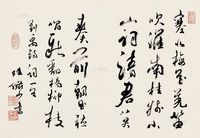 塞北梅花羌笛
吹淮南桂樹小
山詞請君莫
奏前朝曲聽
唱新翻楊柳枝
劉禹錫詞一首
陸儼少書